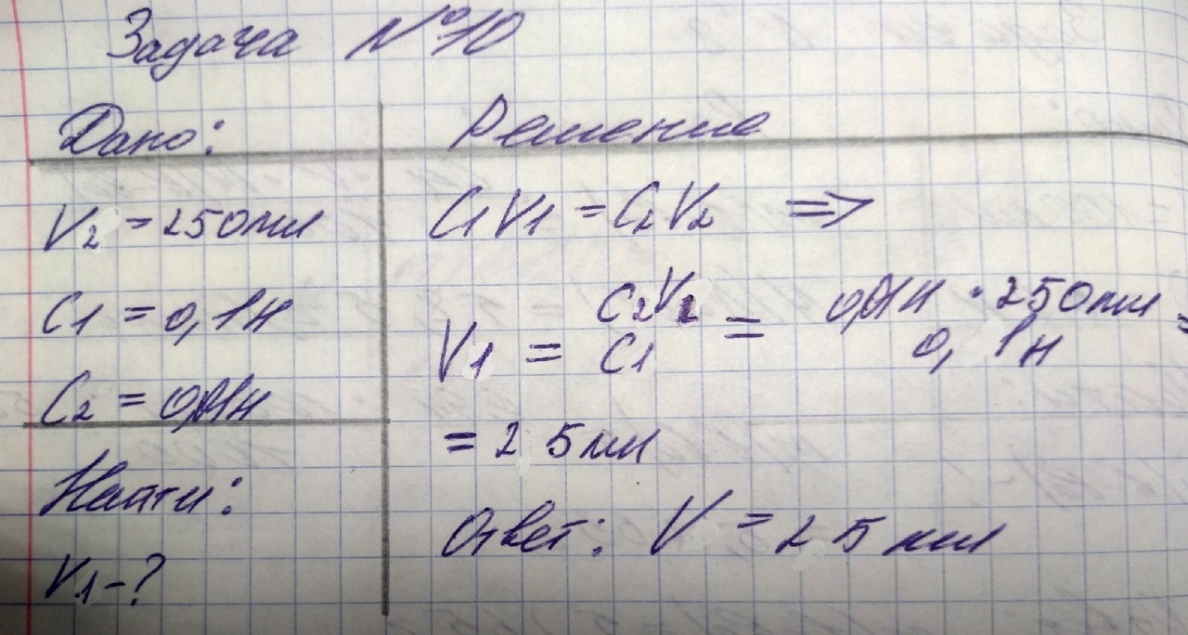 Задача №10
Дано:
V2 = 250мл
C1 = 0,1н
C2 = 0,01н
Найти:
V1 - ?
Решение
C1V1 = C2V2 =>
V1 = C2V2 / C1 = 0,01н · 250мл / 0,1н =
= 25мл
Ответ: V = 25мл